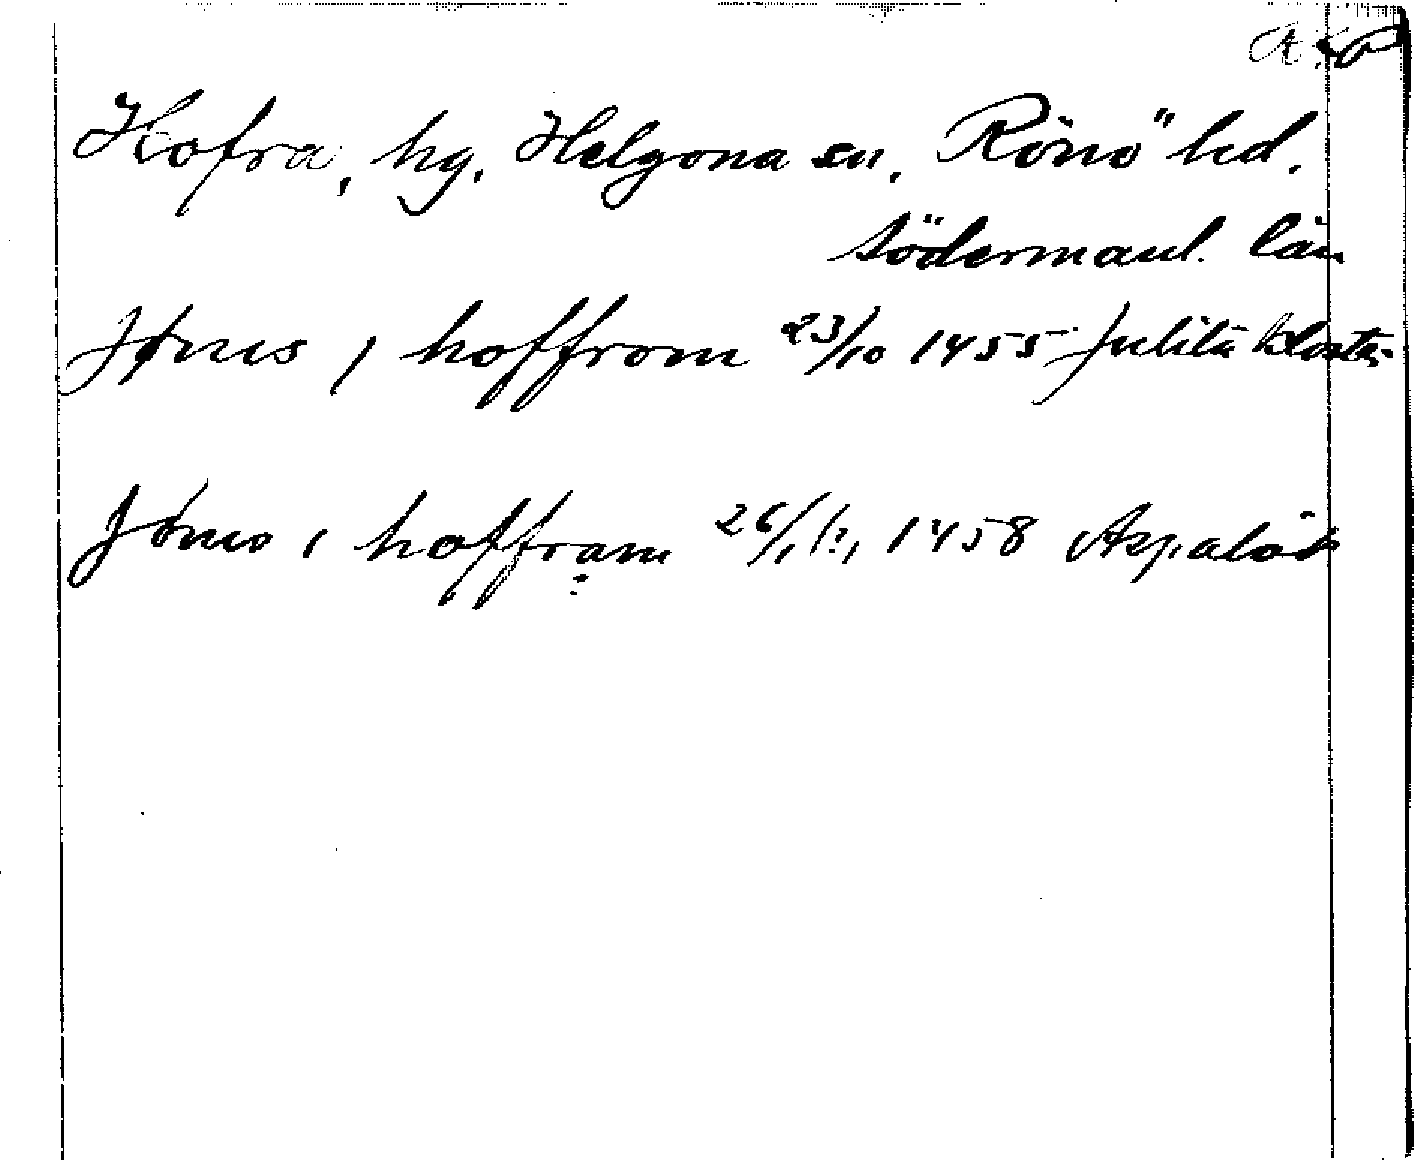 Hofra, hg. Helgona sn. Rönö hd.
Södermanl. län
Jønes i hoffrom 23/10 1455 Julita kloster
Jønes i hoffrom 26/ 1458 Aspalöt